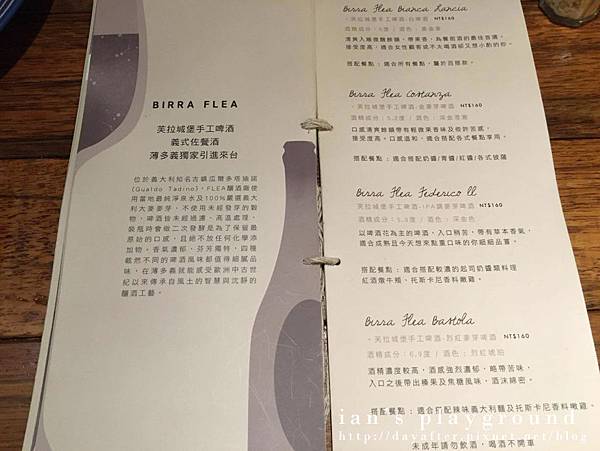 BIRRA FLEA
芙拉城堡手工啤酒
義式佐餐酒
薄多義獨家引進來台
位於義大利知名古鎮瓜爾多塔迪諾
(Gualdo Tadino),FLEA釀酒廠使
用當地最純淨泉水及100%嚴選義大
利大麥麥芽,不使用未經發芽的穀
物,啤酒皆未經過濾、高溫處理,
裝瓶時會做二次發酵是為了保留最
原始的口感,且絕不放任何化學添
加物。香氣濃郁、芬芳獨特,四種
截然不同的啤酒風味都值得細膩品
味,在薄多義就能感受歐洲中古世
紀以來傳承自風土的智慧與沈靜的
釀酒工藝。
Birra Flea Bianca Lancia
・芙拉城堡手工啤酒-白啤酒 NT$160
酒精成分:5度 / 酒色:黃金麥
接受度高,適合女性顧客或不太喝酒卻又想小酌的你。
搭配餐點:適合所有餐點,屬於百搭款。
Birra Flea Costanza
・芙拉城堡手工啤酒-金麥芽啤酒 NT$160
酒精成分:5.2度 / 酒色:深金麥黃
口感清爽餘韻帶有輕微果香味及些許苦感,
接受度高。口感溫和,適合搭配各式餐點享用。
搭配餐點:適合搭配奶醬/青醬/紅醬/各式披薩
Birra Flea Federico ll
・芙拉城堡手工啤酒-IPA調麥芽啤酒 NT$160
酒精成分:5.9度 / 酒色:深金色
以啤酒花為主的啤酒,入口稍苦,帶有草本香氣,
適合成熟且今天想來點重口味的你細細品嘗。
搭配餐點:適合搭配較濃的起司奶醬類料理
紅酒燉牛頰、托斯卡尼香料嫩雞。
Birra Flea Bastola
・芙拉城堡手工啤酒-烈紅麥芽啤酒 NT$160
酒精成分:6.9度 / 酒色:烈紅琥珀
酒精濃度較高,酒感強烈濃郁,略帶苦味,
入口之後帶出榛果及焦糖風味,酒沫綿密。
搭配餐點:適合搭配辣味義大利麵及托斯卡尼香料嫩雞。
未成年請勿飲酒,喝酒不開車
ian's playground
http://dayafter.pixnet.net/blog